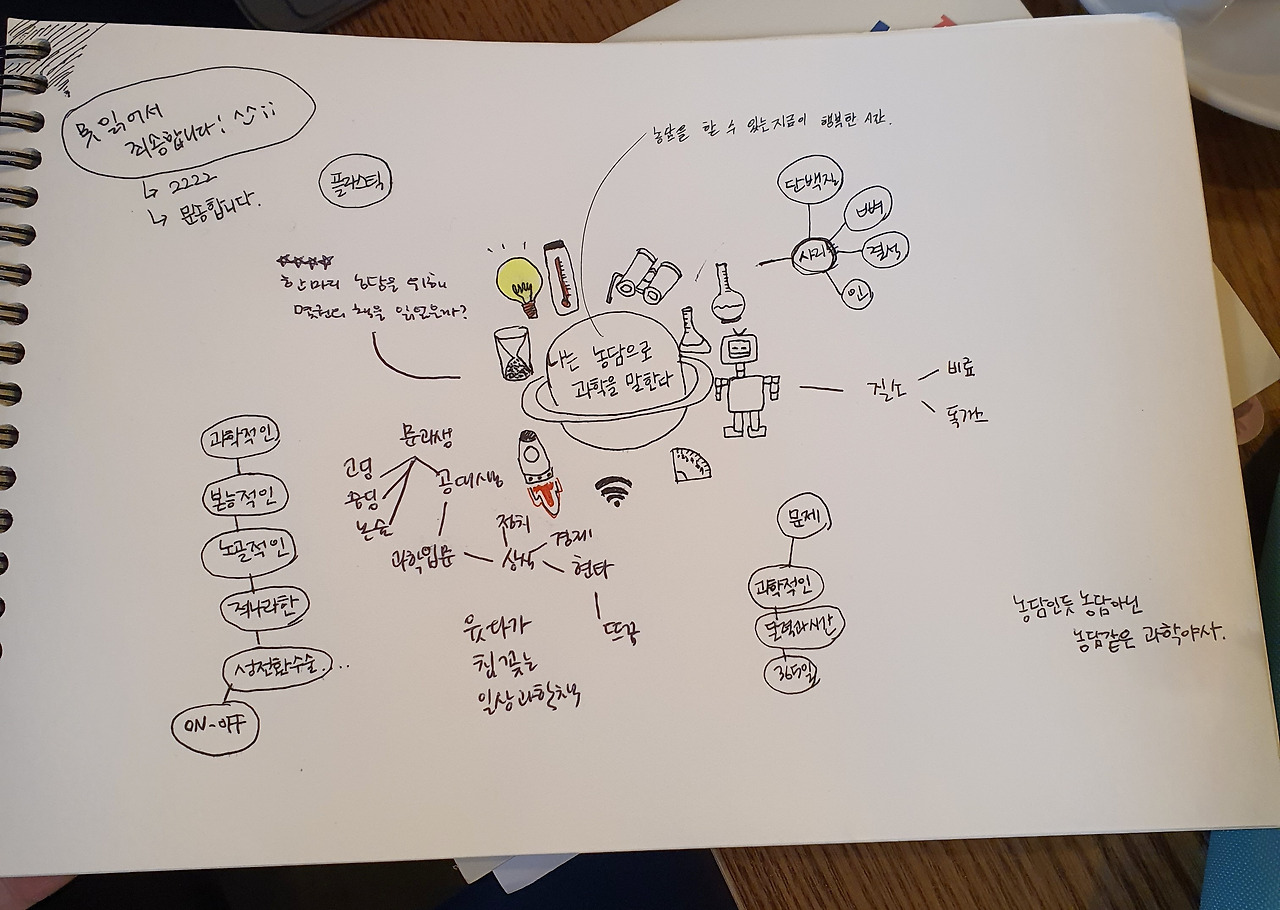 못 읽어서
죄송합니다! ^^;;
↳ 2222
↳ 문송합니다.
플라스틱
농담을 할 수 있는 지금이 행복한 시간.
단백질
뼈
사리
결석
인
한마디 농담을 위해
몇권의 책을 읽었을까?
나는 농담으로
과학을 말한다
질소
비료
독가스
과학적인
본능적인
노골적인
적나라한
성전환수술....
ON-OFF
문과생
고딩
중딩
논술
공대생
과학입문
정치
상식
경제
현타
뜨끔
웃다가
침 꽂는
일상과학책
문제
과학적인
달력과시간
365일
농담인듯 농담아닌
농담같은 과학야사.